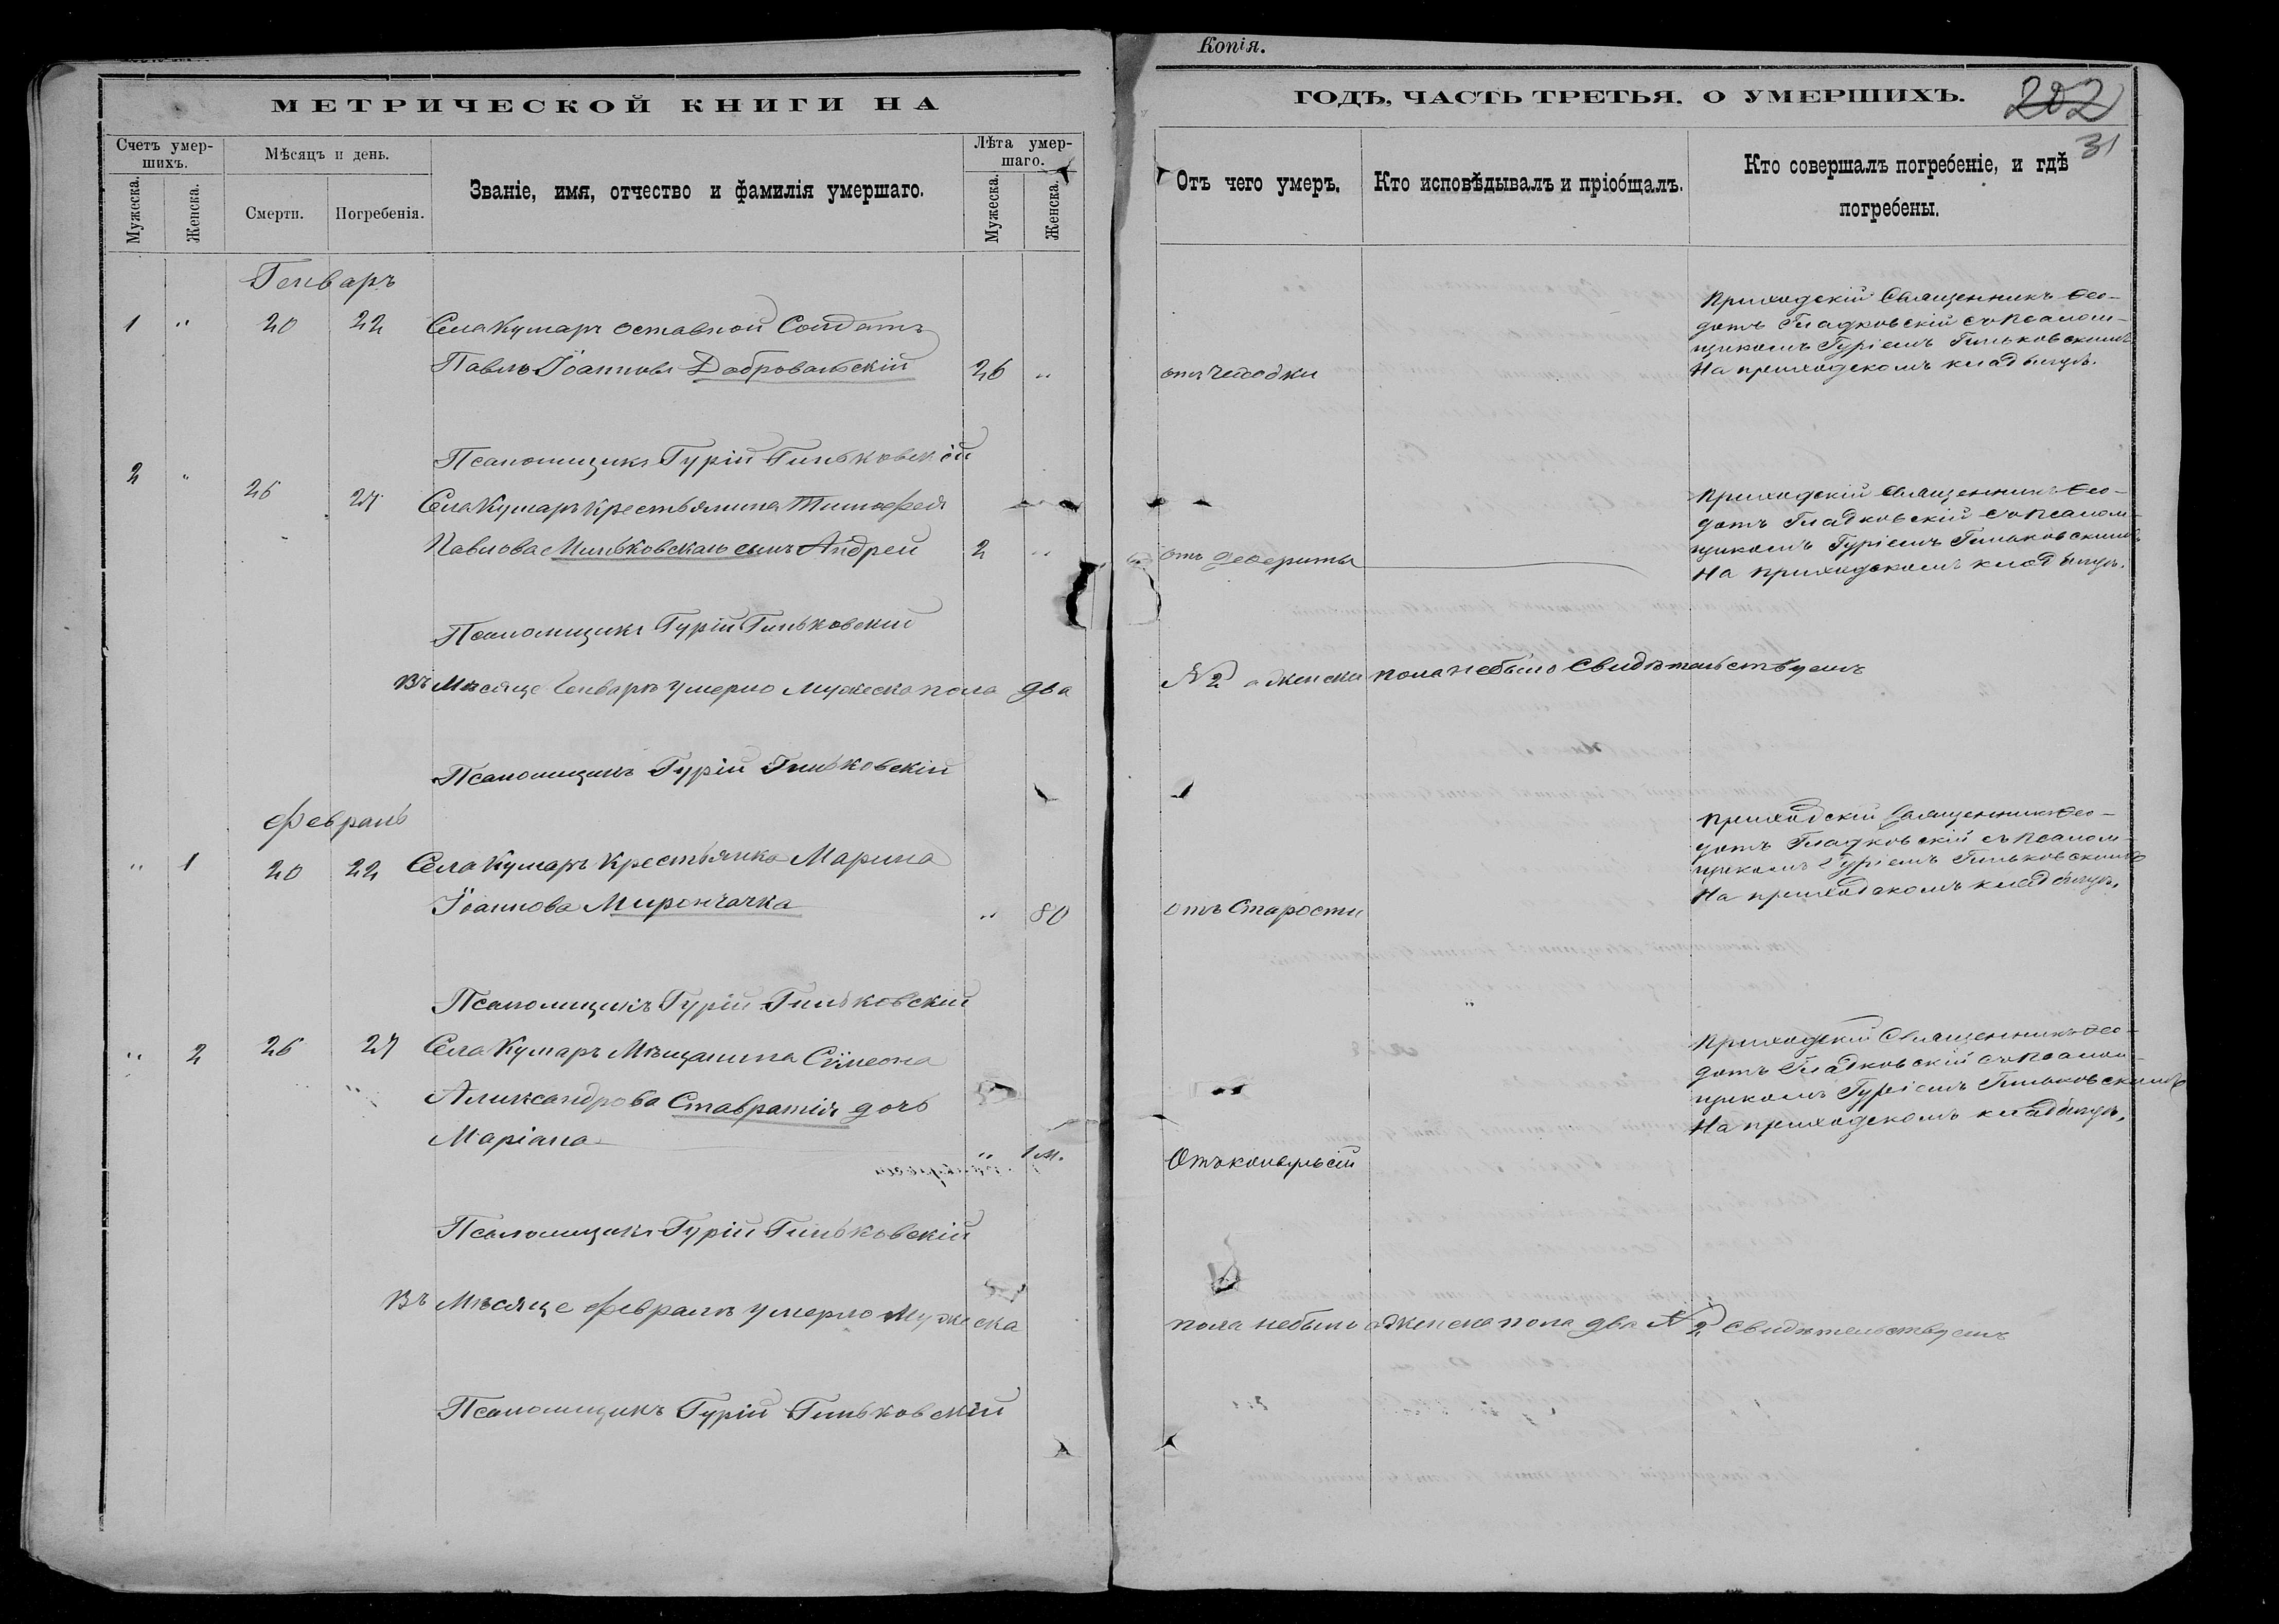 Копія.
МЕТРИЧЕСКОЙ КНИГИ НА
ГОДЪ, ЧАСТЬ ТРЕТЬЯ, О УМЕРШИХЪ.
202
31
Счетъ умер-
шихъ.
Мужеска.
Женска.
Мѣсяцъ и день.
Смерти.
Погребенія.
Званіе, имя, отчество и фамилія умершаго.
Лѣта умер-
шаго.
Мужеска.
Женска.
Отъ чего умеръ.
Кто исповѣдывалъ и пріобщалъ.
Кто совершалъ погребеніе, и гдѣ
погребены.
Генваръ
1 " 20 22 Села Кумаръ оставной Солдатъ
Павлъ Іоанновъ Добровальскій 26 "
отъ Чеходки
Приходскій Священникъ Ѳео-
дотъ Гладковскій съ Псалом-
щикомъ Гуріемъ Гиньковскимъ
На приходскомъ кладбищѣ.
Псаломщикъ Гурій Гиньковскій
2 " 26 27 Села Кумаръ Крестьянина Тимофея
Павлова Миньковскаго сынъ Андрей 2 "
отъ дефериты
Приходскій Священникъ Ѳео-
дотъ Гладковскій съ Псалом-
щикомъ Гуріемъ Гиньковскимъ
На приходскомъ кладбищѣ.
Псаломщикъ Гурій Гиньковскій
Въ Мѣсяце Генварѣ умерло Мужеска пола два
№ 2 а женска пола небыло Свидѣтельствуемъ
Псаломщикъ Гурій Гиньковскій
Февраль
" 1 20 22 Села Кумаръ Крестьянка Марина
Іоаннова Мирончачка " 80
отъ Старости
Приходскій Священникъ Ѳео-
дотъ Гладковскій съ Псалом-
щикомъ Гуріемъ Гиньковскимъ
На приходскомъ кладбищѣ.
Псаломщикъ Гурій Гиньковскій
" 2 26 27 Села Кумаръ Мѣщанина Сѵмеона
Александрова Ставратія дочь
Маріана " 1 м.
Отъ конвульсій
Приходскій Священникъ Ѳео-
дотъ Гладковскій съ Псалом-
щикомъ Гуріемъ Гиньковскимъ
На приходскомъ кладбищѣ.
Псаломщикъ Гурій Гиньковскій
Въ Мѣсяце Февралѣ умерло Мужеска
пола небыло а женска пола два № 2 Свидѣтельствуемъ
Псаломщикъ Гурій Гиньковскій